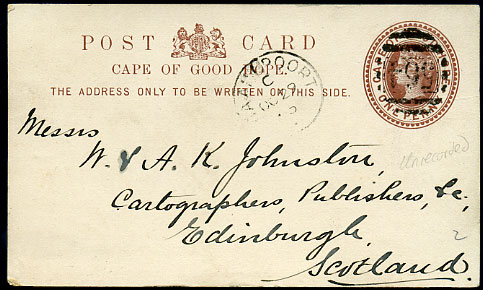 POST CARD
CAPE OF GOOD HOPE.
THE ADDRESS ONLY TO BE WRITTEN ON THIS SIDE.
ONE PENNY
OC 29
Messrs
W. & A. K. Johnston,
Cartographers, Publishers, &c.,
Edinburgh,
Scotland.
Unrecorded
2